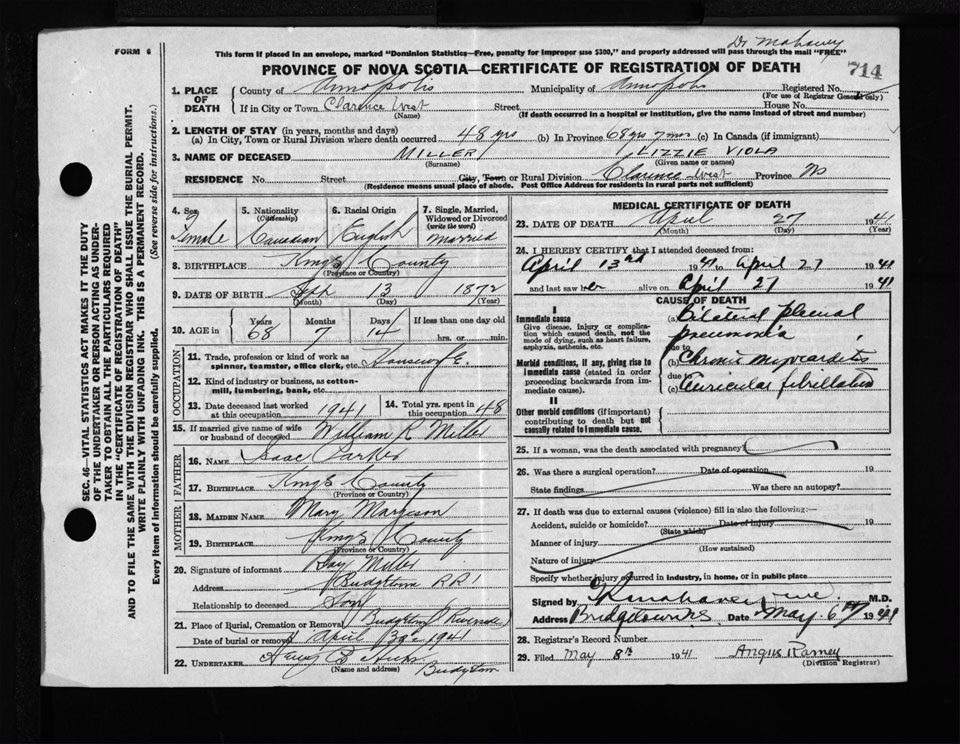 FORM 6
Dr Mahaney
This form if placed in an envelope, marked "Dominion Statistics—Free, penalty for improper use $300," and properly addressed will pass through the mail "FREE"
PROVINCE OF NOVA SCOTIA—CERTIFICATE OF REGISTRATION OF DEATH
714
1. PLACE OF DEATH County of Annapolis Municipality of Annapolis Registered No.
(For use of Registrar General only)
If in City or Town Clarence West Street House No.
(Name) (If death occurred in a hospital or institution, give the name instead of street and number)
2. LENGTH OF STAY (in years, months and days)
(a) In City, Town or Rural Division where death occurred 48 yrs (b) In Province 68 yrs 7 mos (c) In Canada (if immigrant)
3. NAME OF DECEASED MILLER, LIZZIE VIOLA
(Surname) (Given name or names)
RESIDENCE No. Street City, Town or Rural Division Clarence West Province NS
(Residence means usual place of abode. Post Office Address for residents in rural parts not sufficient)
4. Sex Female
5. Nationality (Citizenship) Canadian
6. Racial Origin English
7. Single, Married, Widowed or Divorced (write the word) Married
8. BIRTHPLACE Kings County
(Province or Country)
9. DATE OF BIRTH Sept 13 1872
(Month) (Day) (Year)
10. AGE in Years 68 Months 7 Days 14 If less than one day old
hrs. or min.
OCCUPATION
11. Trade, profession or kind of work as spinner, teamster, office clerk, etc. Housewife
12. Kind of industry or business, as cotton-mill, lumbering, bank, etc.
13. Date deceased last worked at this occupation 1941
14. Total yrs. spent in this occupation 48
15. If married give name of wife or husband of deceased William R Miller
FATHER
16. NAME Isaac Parker
17. BIRTHPLACE Kings County
(Province or Country)
MOTHER
18. MAIDEN NAME Mary Margeson
19. BIRTHPLACE Kings County
(Province or Country)
20. Signature of informant Miller
Address Bridgetown RR1
Relationship to deceased Son
21. Place of Burial, Cremation or Removal Bridgetown (Riverside)
Date of burial or removal April 30th 1941
22. UNDERTAKER
(Name and address) Bridgetown
MEDICAL CERTIFICATE OF DEATH
23. DATE OF DEATH April 27 1941
(Month) (Day) (Year)
24. I HEREBY CERTIFY that I attended deceased from:
April 13 1941 to April 27 1941
and last saw her alive on April 27 1941
CAUSE OF DEATH
I
Immediate cause
Give disease, injury or complication which caused death, not the mode of dying, such as heart failure, asphyxia, asthenia, etc.
(a) Bilateral pleural pneumonia
due to
Morbid conditions, if any, giving rise to immediate cause (stated in order proceeding backwards from immediate cause).
(b) Chronic myocarditis
due to
(c) Auricular fibrillation
II
Other morbid conditions (if important) contributing to death but not causally related to immediate cause.
25. If a woman, was the death associated with pregnancy
26. Was there a surgical operation? Date of operation 19
State findings Was there an autopsy?
27. If death was due to external causes (violence) fill in also the following:—
Accident, suicide or homicide? Date of injury 19
(State which)
Manner of injury
(How sustained)
Nature of injury
Specify whether injury occurred in industry, in home, or in public place
Signed by M.D.
Address Bridgetown NS Date May 6th 1941
28. Registrar's Record Number
29. Filed May 8th 1941 Angus Ramey
(Division Registrar)
SEC. 46—VITAL STATISTICS ACT MAKES IT THE DUTY
OF THE UNDERTAKER OR PERSON ACTING AS UNDER-
TAKER TO OBTAIN ALL THE PARTICULARS REQUIRED
IN THE "CERTIFICATE OF REGISTRATION OF DEATH"
AND TO FILE THE SAME WITH THE DIVISION REGISTRAR WHO SHALL ISSUE THE BURIAL PERMIT.
WRITE PLAINLY WITH UNFADING INK. THIS IS A PERMANENT RECORD.
Every item of information should be carefully supplied. (See reverse side for instructions.)